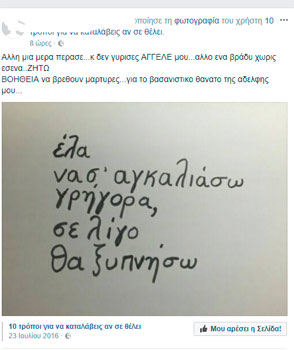 κοινοποίησε τη φωτογραφία του χρήστη 10
τρόποι για να καταλάβεις αν σε θέλει.
8 ώρες
Αλλη μια μερα περασε...κ δεν γυρισες ΑΓΓΕΛΕ μου...αλλο ενα βράδυ χωρις
εσενα..ΖΗΤΩ
ΒΟΗΘΕΙΑ να βρεθουν μαρτυρες...για το βασανιστικο θανατο της αδελφης
μου...
έλα
να σ' αγκαλιάσω
γρήγορα,
σε λίγο
θα ξυπνήσω
10 τρόποι για να καταλάβεις αν σε θέλει
23 Ιουλίου 2016
Μου αρέσει η Σελίδα!